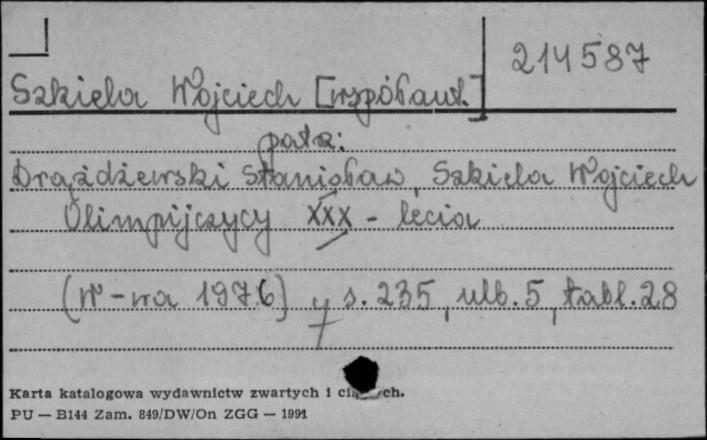 214587
Szkiela Wojciech [współaut.]
patrz:
Drążdżewski Stanisław, Szkiela Wojciech
Olimpijczycy XXX-lecia
(W-wa 1976) s. 235, nlb. 5, tabl. 28
Karta katalogowa wydawnictw zwartych i ch.
PU — B144 Zam. 849/DW/On ZGG — 1991